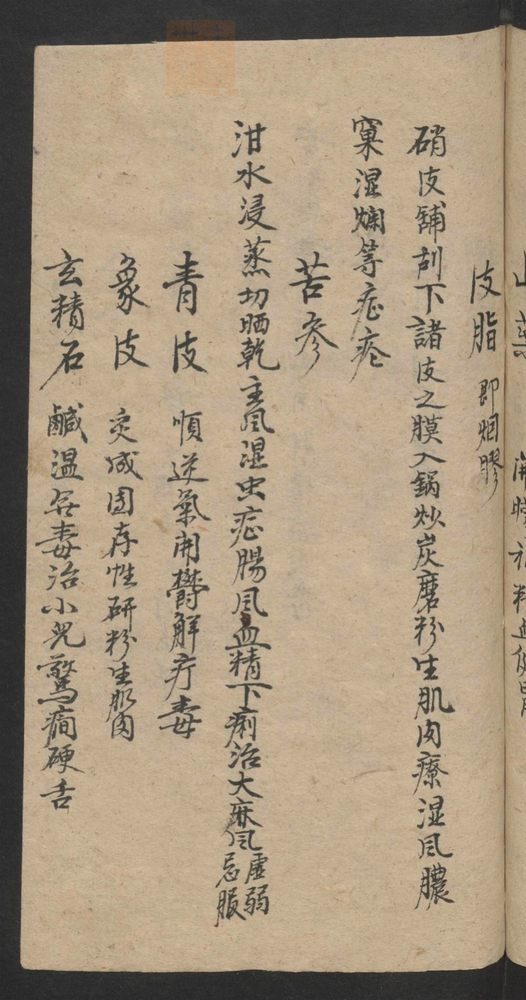 皮脂 即烟膠
硝皮舖刮下諸皮之膜入鍋炒炭磨粉生肌肉療湿風膿
窠湿爛等症疮
苦參
泔水浸蒸切晒乾主風湿虫症腸風血精下痢治大麻風虚弱
忌服
青皮 順逆氣開鬱解疔毒
象皮 炙成團存性研粉生肌肉
玄精石 鹹温無毒治小兒驚癇硬舌